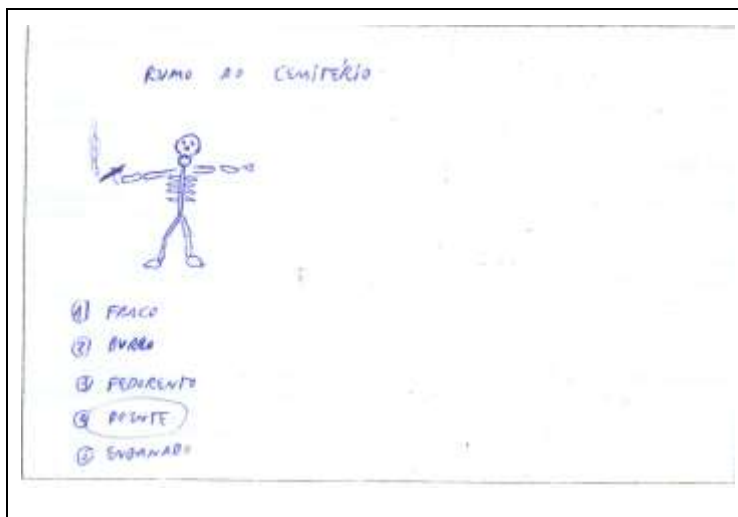 RUMO AO CEMITÉRIO
① FRACO
② BURRO
③ FEDORENTO
④ DOENTE
⑤ ENGANADO